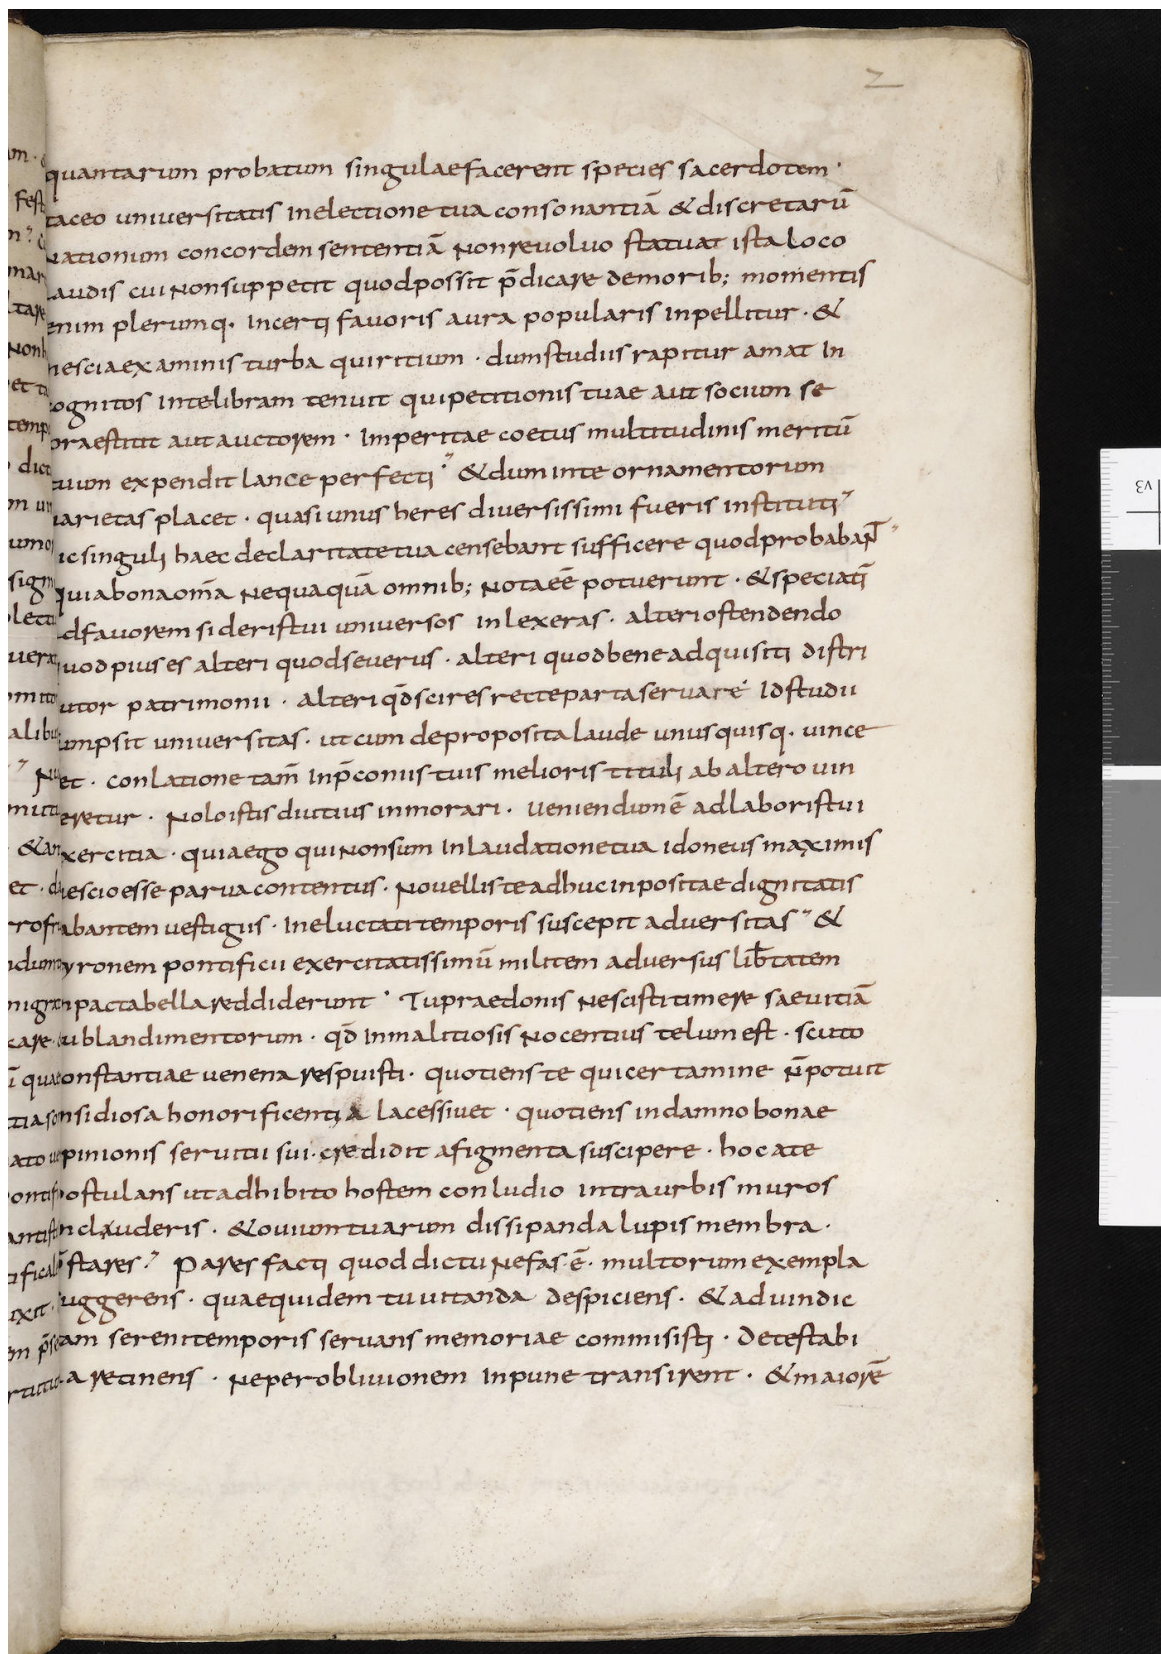 2
quantarum probatum singulae facerent species sacerdotem·
taceo universitatis in electione tua consonantiā & discretarū
nationum concordem sententiā non revolvo statuat ista loco
laudis cui non suppetit quod possit p̄dicare de morib; momentis
enim plerumq· incerti favoris aura popularis inpellitur · &
nescia examinis turba quiritium · dum studiis rapitur amat in
cognitos inte libram tenuit qui petitionis tuae aut socium se
praestitit aut auctorem · Imperitae coetus multitudinis meritū
tuum expendit lance perfecti · & dum in te ornamentorum
varietas placet · quasi unus heres diversissimi fueris instituti
sic singuli haec de claritate tua censebant sufficere quod probabant̄
quia bona om̄a nequaquā omnib; nota eē potuerunt · & speciatī
ad favorem si deristui universos inlexeras · alteri ostendendo
quod pius es alteri quod severus · alteri quod bene adquisiti distri
butor patrimonii · alteri qd̄ scires recte parta servare · Id studii
sumpsit universitas · ut cum de proposita laude unusquisq· vince
ret · conlatione tam̄ in p̄coniis tuis melioris tituli ab altero vin
ceretur · Nolo istis diutius inmorari · veniendum ē ad laboris tui
exercitia · quia ego qui non sum in laudatione tua idoneus maximis
nescio esse parva contentus · Novellis te adhuc inpositae dignitatis
labantem vestigiis · ineluctati temporis suscepit adversitas · &
tyronem pontificii exercitatissimū militem adversus lib̄tatem
inpacta bella reddiderunt · Tu praedonis nescisti timere saevitiā
tu blandimentorum · qd̄ in malitiosis nocentius telum est · scuto
constantiae venena respuisti · quotiens te qui certamine n̄ potuit
insidiosa honorificentia lacessivet · quotiens in damno bonae
opinionis servitii sui · credidit a figmenta suscipere · hoc a te
postulans ut adhibito hostem conludio intra urbis muros
inclauderis · & ovium tuarum dissipanda lupis membra ·
p̄stares · Pares facti quod dictu nefas · ē · multorum exempla
suggerens · quae quidem tu vitanda despiciens · & ad vindic
tam sereni temporis servans memoriae commisisti · Detestabi
lia retinens · ne per oblivionem inpune transirent · & maiorē